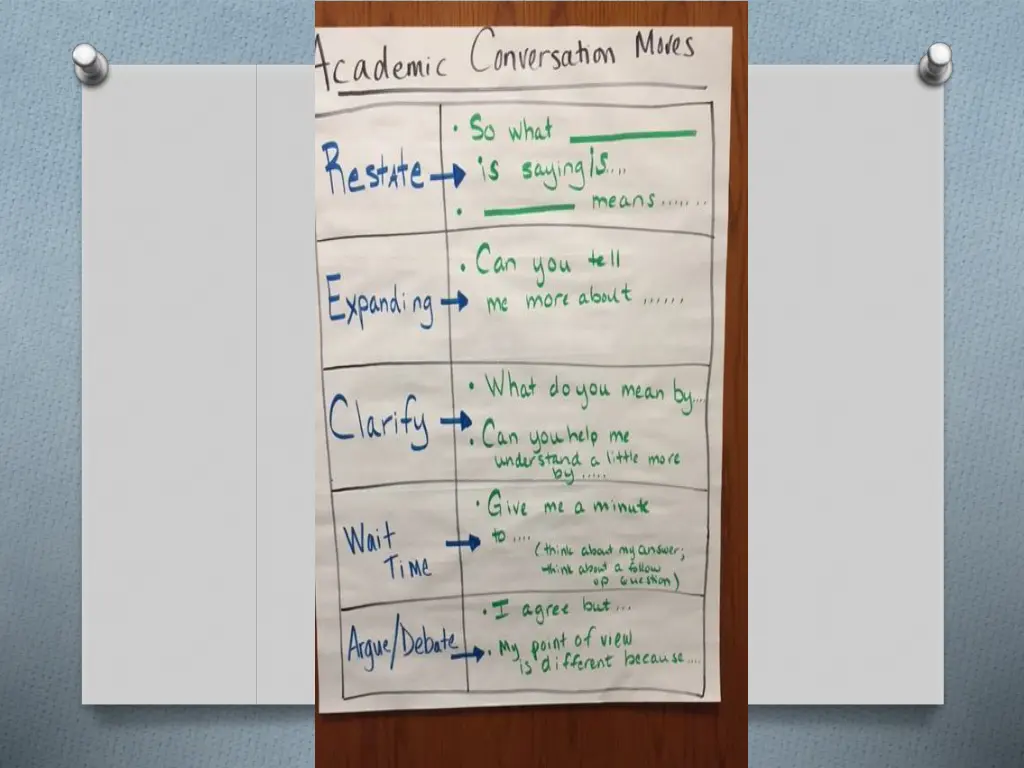 Academic Conversation Moves
Restate
• So what ________
is saying is....
• ________ means.......
Expanding
• Can you tell
me more about ......
Clarify
• What do you mean by....
• Can you help me
understand a little more
by .....
Wait
Time
• Give me a minute
to ....
(think about my answer;
think about a follow
up question)
Argue/Debate
• I agree but...
• My point of view
is different because....